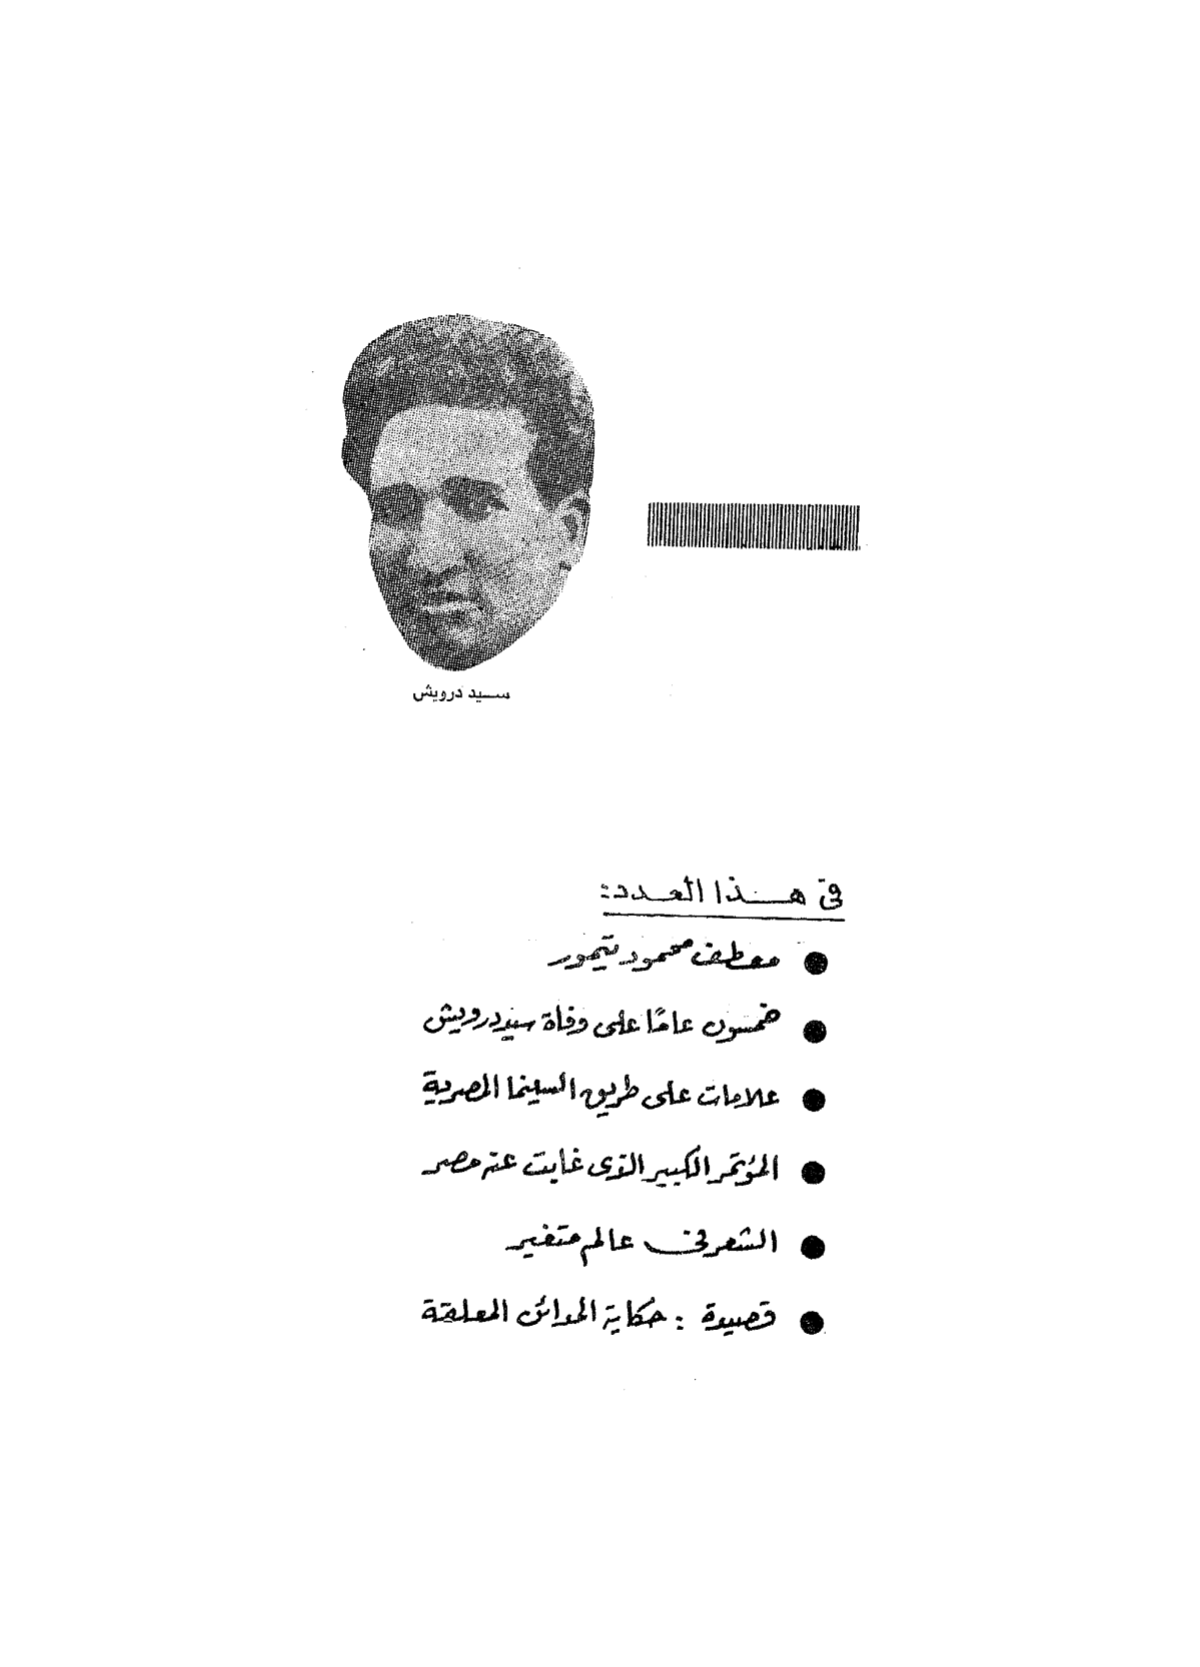 سيد درويش
فى هذا العدد:
● معطف محمود تيمور
● خمسون عامًا على وفاة سيد درويش
● علامات على طريق السينما المصرية
● المؤتمر الكبير الذى غابت عنه مصر
● الشعر فى عالم متغير
● قصيدة : حكاية الحدائق المعلقة